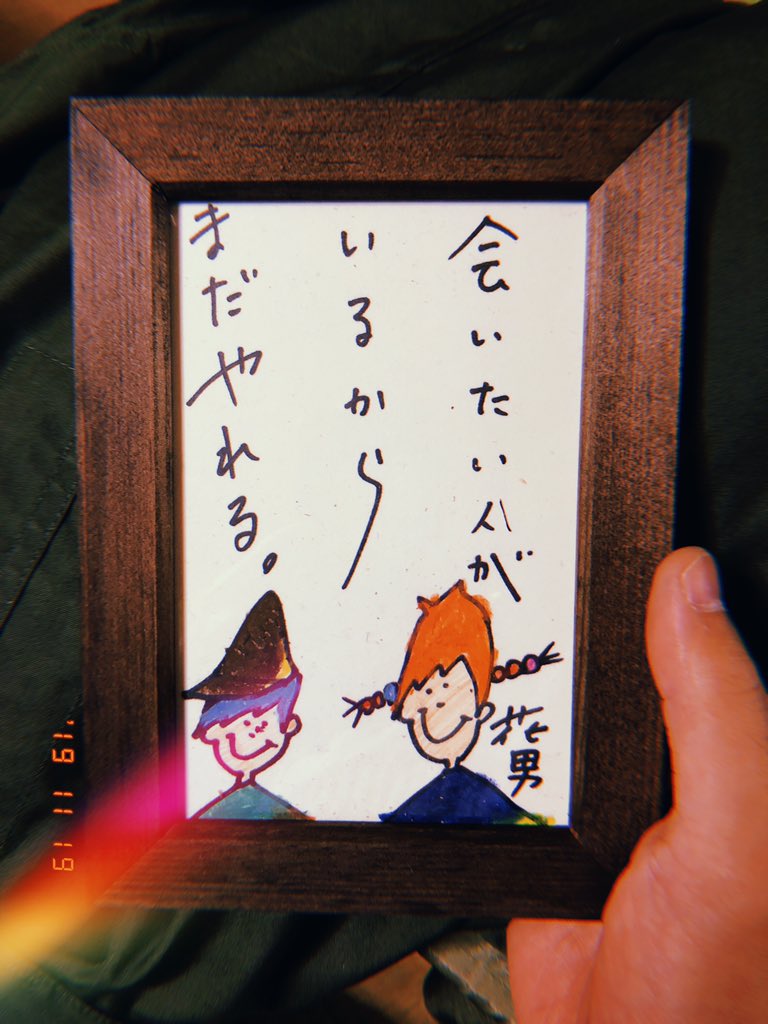 会いたい人が
いるから
まだやれる。
花男
'19 11 19